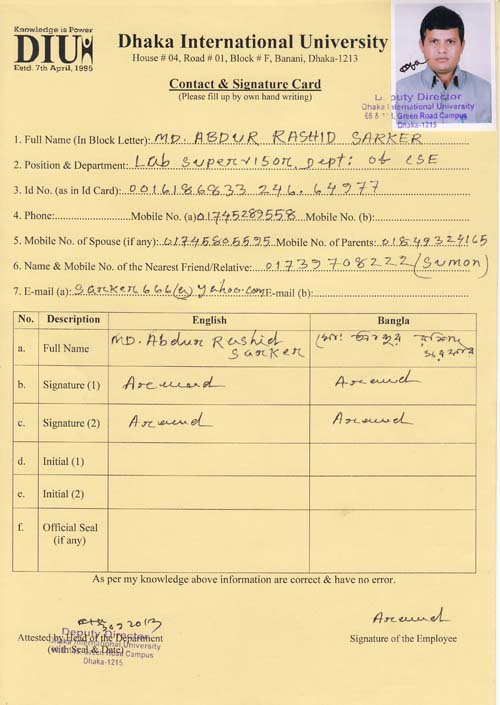 Knowledge is Power
DIU
Estd. 7th April, 1995
Dhaka International University
House # 04, Road # 01, Block # F, Banani, Dhaka-1213
Contact & Signature Card
(Please fill up by own hand writing)
Deputy Director
Dhaka International University
Green Road Campus
Dhaka-1215
1. Full Name (In Block Letter): MD. ABDUR RASHID SARKER
2. Position & Department: Lab supervisor, dept: of CSE
3. Id No. (as in Id Card): 0016186833 246. 64977
4. Phone: Mobile No. (a) 01745289558 Mobile No. (b):
5. Mobile No. of Spouse (if any): 01745805595 Mobile No. of Parents: 01849324165
6. Name & Mobile No. of the Nearest Friend/Relative: 01739708222 (Sumon)
7. E-mail (a): sarker666@yahoo.com E-mail (b):
No. Description English Bangla
a. Full Name MD. Abdur Rashid Sarker মোঃ আবদুর রশিদ সরকার
b. Signature (1)
c. Signature (2)
d. Initial (1)
e. Initial (2)
f. Official Seal
(if any)
As per my knowledge above information are correct & have no error.
2013
Deputy Director
Attested by Head of the Department
Dhaka International University
(with Seal & Date)
Green Road Campus
Dhaka-1215
Signature of the Employee